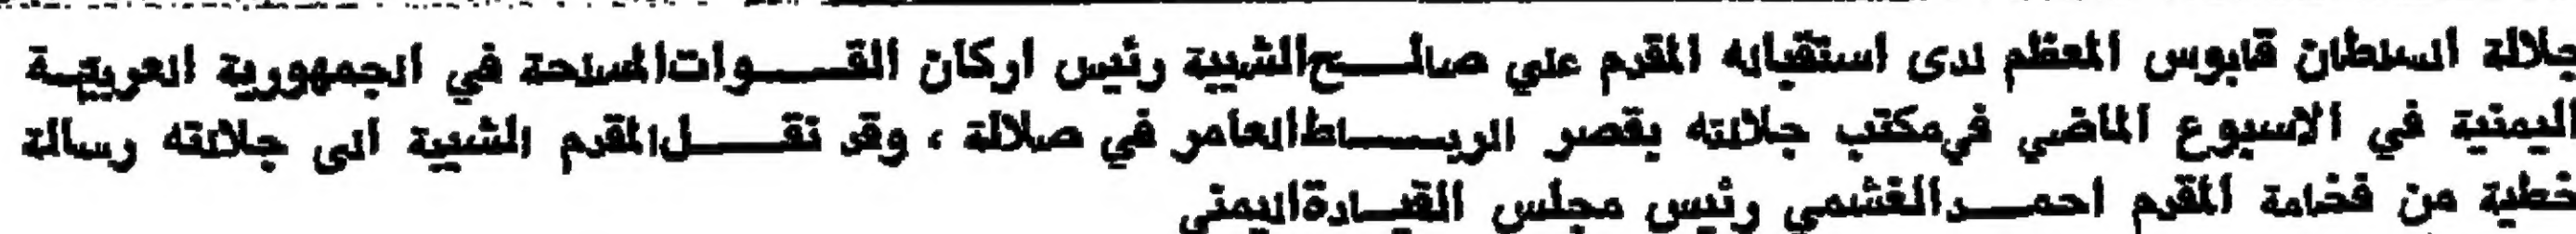 جلالة السلطان قابوس المعظم لدى استقباله المقدم علي صالح الشيبة رئيس اركان القوات المسلحة في الجمهورية العربية
اليمنية في الاسبوع الماضي في مكتب جلالته بقصر الرباط العامر في صلالة ، وقد نقل المقدم الشيبة الى جلالته رسالة
خطية من فخامة المقدم احمد الغشمي رئيس مجلس القيادة اليمني